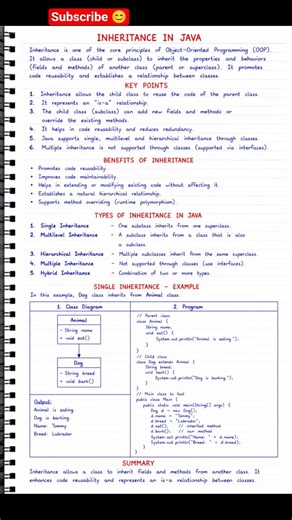 Subscribe 😊
INHERITANCE IN JAVA
Inheritance is one of the core principles of Object-Oriented Programming (OOP).
It allows a class (child or subclass) to inherit the properties and behaviors
(fields and methods) of another class (parent or superclass). It promotes
code reusability and establishes a relationship between classes.
KEY POINTS
1. Inheritance allows the child class to reuse the code of the parent class.
2. It represents an "is-a" relationship.
3. The child class (subclass) can add new fields and methods or
override the existing methods.
4. It helps in code reusability and reduces redundancy.
5. Java supports single, multilevel and hierarchical inheritance through classes.
6. Multiple inheritance is not supported through classes (supported via interfaces).
BENEFITS OF INHERITANCE
• Promotes code reusability.
• Improves code maintainability.
• Helps in extending or modifying existing code without affecting it.
• Establishes a natural hierarchical relationship.
• Supports method overriding (runtime polymorphism).
TYPES OF INHERITANCE IN JAVA
1. Single Inheritance - One subclass inherits from one superclass.
2. Multilevel Inheritance - A subclass inherits from a class that is also
a subclass.
3. Hierarchical Inheritance - Multiple subclasses inherit from the same superclass.
4. Multiple Inheritance - Not supported through classes (use interfaces).
5. Hybrid Inheritance - Combination of two or more types.
SINGLE INHERITANCE - EXAMPLE
In this example, Dog class inherits from Animal class.
1. Class Diagram
Animal
- String name
+ void eat()
Dog
- String breed
+ void bark()
Output:
Animal is eating.
Dog is barking.
Name: Tommy
Breed: Labrador
2. Program
// Parent class
class Animal {
String name;
void eat() {
System.out.println("Animal is eating.");
}
}
// Child class
class Dog extends Animal {
String breed;
void bark() {
System.out.println("Dog is barking.");
}
}
// Main class to test
public class Main {
public static void main(String[] args) {
Dog d = new Dog();
d.name = "Tommy";
d.breed = "Labrador";
d.eat(); // inherited method
d.bark(); // own method
System.out.println("Name: " + d.name);
System.out.println("Breed: " + d.breed);
}
}
SUMMARY
Inheritance allows a class to inherit fields and methods from another class. It
enhances code reusability and represents an is-a relationship between classes.